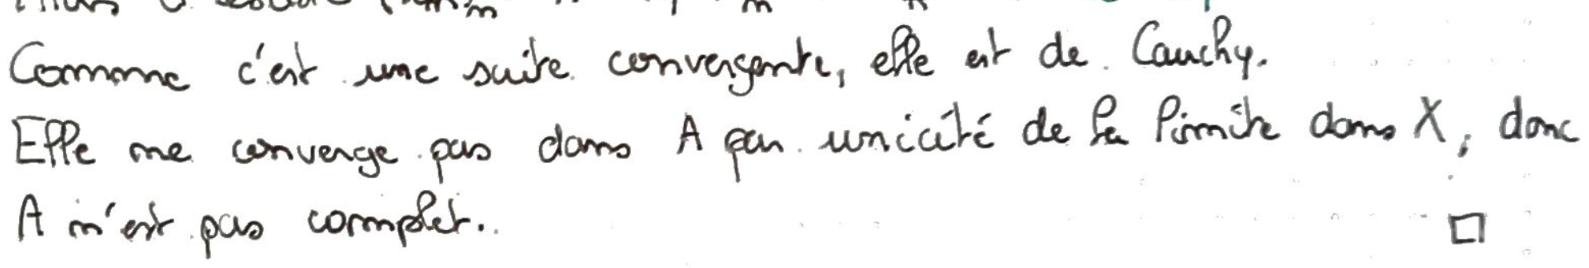 Comme c'est une suite convergente, elle est de Cauchy.
Elle ne converge pas dans A par unicité de la limite dans X, donc
A n'est pas complet.